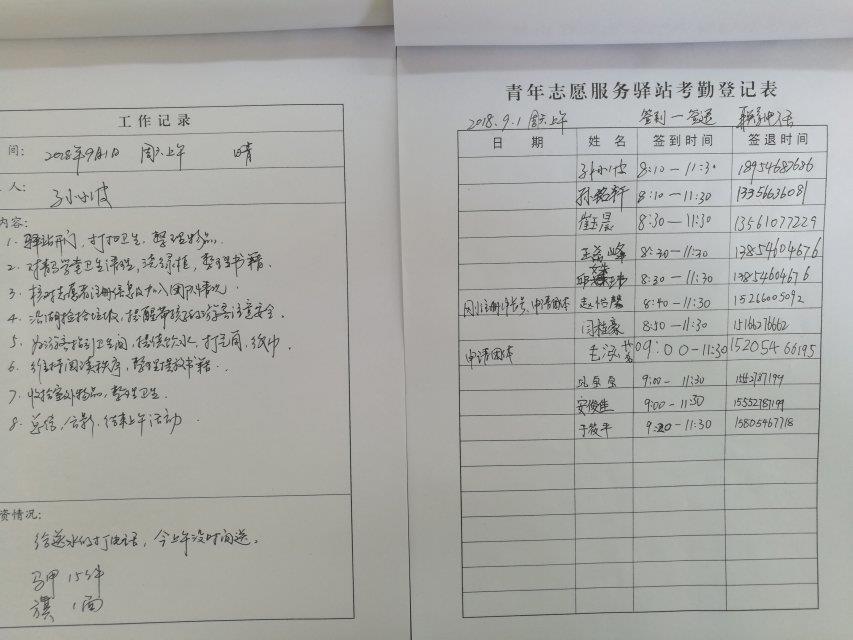 工作记录
间: 2018年9月1日 周六上午 晴
人: 孙小波
内容:
1. 驿站开门,打扫卫生,整理物品.
2. 对青马学堂卫生清理,浇绿植,整理书籍.
3. 核对志愿者注册信息及加入团队情况.
4. 沿湖捡拾垃圾,提醒带孩子的游客注意安全.
5. 为游客指引卫生间,提供饮水,打气筒,纸巾
6. 维持阅读秩序,整理摆放书籍.
7. 收拾室外物品,整理卫生.
8. 总结,合影,结束上午活动.
资情况:
给送水的打电话,今上午没时间送。
马甲 15件
旗 1面
青年志愿服务驿站考勤登记表
2018.9.1 周六上午 签到一签退 联系电话
日 期 姓 名 签到时间 签退时间
孙小波 8:10—11:30 18954682686
孙铭轩 8:10—11:30 13956636081
崔玉晨 8:30—11:30 13561077229
王益峰 8:30—11:30 13854604676
8:30—11:30 13854604676
赵怡馨 8:40—11:30 15266005092
闫桂豪 8:50—11:30 15166276662
申请团体 毛泓 09:00—11:30 15205466195
9:00—11:30
安俊佳 9:00—11:30 15552787199
于筱平 9:20—11:30 15805467718